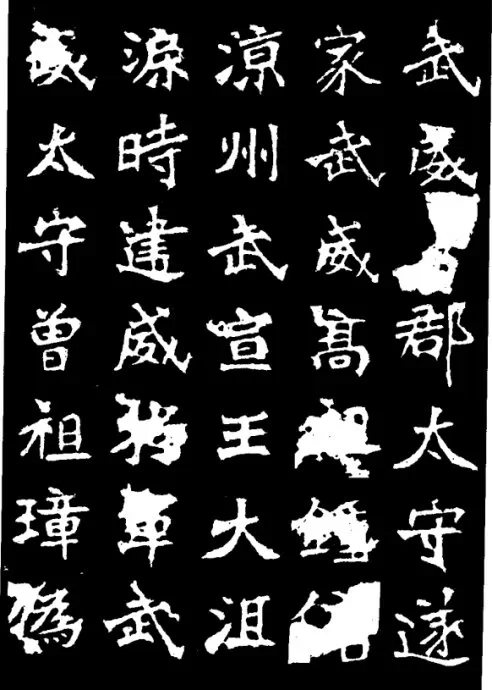 武威郡太守遂
家武威髙鍾
涼州武宣王大沮
渠時建威將軍武
威太守曾祖璋偽